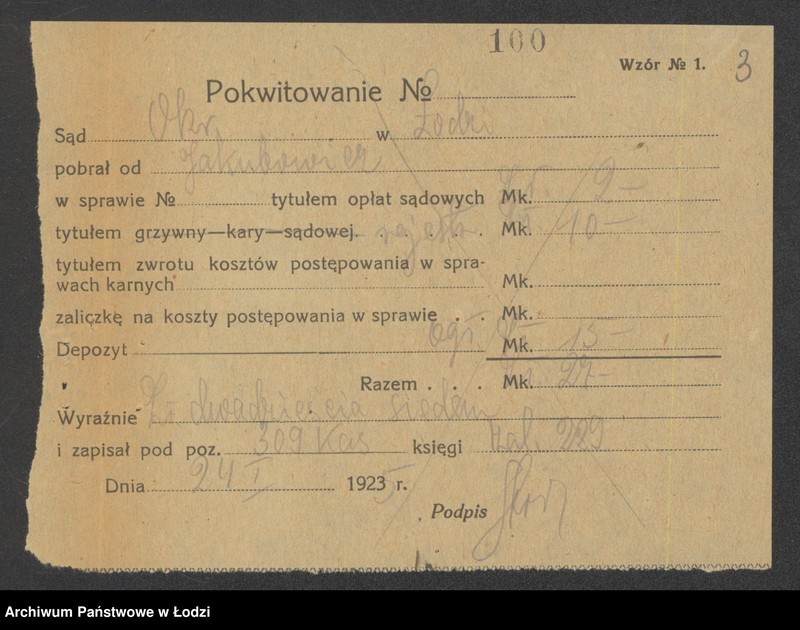 100
Wzór № 1. 3
Pokwitowanie №
Sąd Okr. w Łodzi
pobrał od Jakubowicz
w sprawie № tytułem opłat sądowych Mk. Zł. 12 –
tytułem grzywny—kary—sądowej. rejestr. Mk. 10 –
tytułem zwrotu kosztów postępowania w spra-
wach karnych Mk.
zaliczkę na koszty postępowania w sprawie . .  Mk.
Depozyt ogł. Mk. 15 –
Razem . . . Mk. Zł. 27 –
Wyraźnie Zł dwadzieścia siedem
i zapisał pod poz. 309 Kas księgi 229
Dnia 24 I 1923 5 r.
Podpis
Archiwum Państwowe w Łodzi